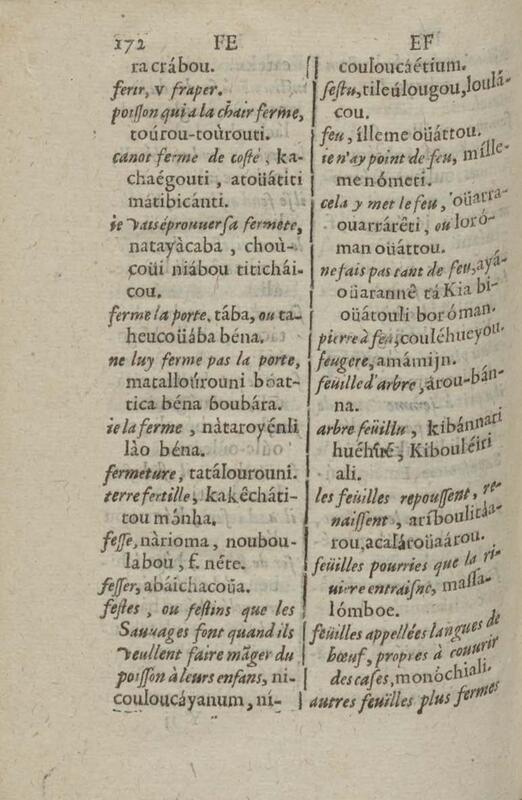 172 FE EF
racrábou.
ferir, v fraper.
poisson qui a la chair ferme,
toúrou-toùrouti.
canot ferme de costé, ka-
chaégouti, atoüátiti
mátibicánti.
ie vais éprouuer sa fermete,
natayàcaba, choù-
coüi niábou titichái-
cou.
ferme la porte, tába, ou ta-
heucoüába béna.
ne luy ferme pas la porte,
mataĺloúrouni boat-
tica béna boubára.
ie la ferme, nàtaroyénli
lào béna.
fermeture, tatálourouni.
terre fertille, kakêcháti-
tou mónha.
fesse, nàrioma, noubou-
labou, f. néte.
fesser, abáichacoüa.
festes, ou festins que les
Sauuages font quand ils
veullent faire mãger du
poisson à leurs enfans, ni-
couloucáyanum, ní-
couloucáétium.
festu, tileúlougou, loulá-
cou.
feu, ílleme oüáttou.
ie n'ay point de feu, mílle-
me nómeti.
cela y met le feu, oüarra-
ouarrárêti, ou loró-
man oüáttou.
ne fais pas tant de feu, ayá-
oüarannê tá Kia bi-
oüátouli boróman.
pierre à feu, couléhueyou.
feugere, amámijn.
feüille d'arbre, árou-bán-
na.
arbre feüillu, kibánnari
huéhué, Kibouléiri
ali.
les feüilles repoussent, re-
naissent, aríboulitáa-
rou, acalároüaárou.
feüilles pourries que la ri-
uiere entraisne, massa-
lómboe.
feüilles appellées langues de
bœuf, propres à couurir
des cases, monóchiali.
autres feuïlles plus fermes